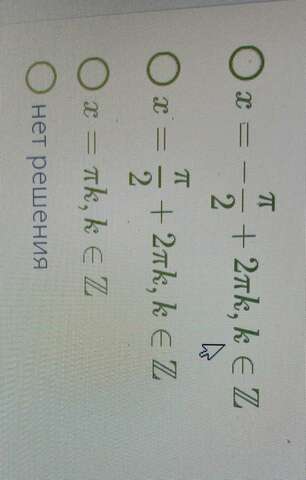 x = −π/2 + 2πk, k ∈ ℤ
x = π/2 + 2πk, k ∈ ℤ
x = πk, k ∈ ℤ
нет решения